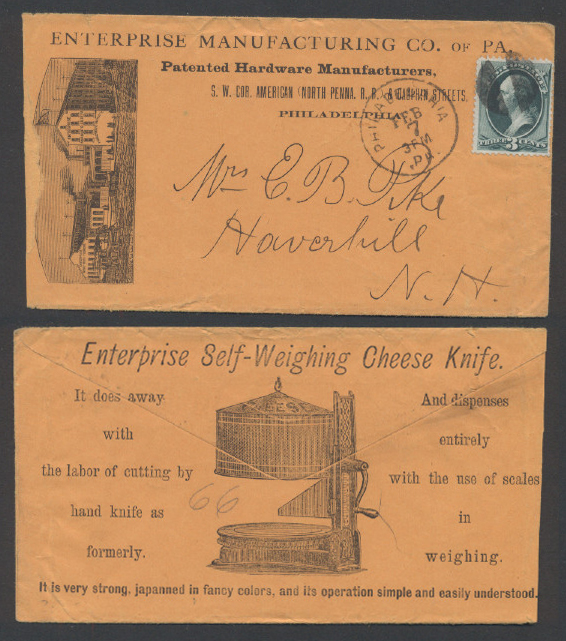 ENTERPRISE MANUFACTURING CO. OF PA.
Patented Hardware Manufacturers,
S. W. COR. AMERICAN (NORTH PENNA. R. R.) & DAUPHIN STREETS,
PHILADELPHIA
PHILADELPHIA
FEB
7
3 PM
PA.
3 CENTS
Mrs E. B. Pike
Haverhill
N. H.
Enterprise Self-Weighing Cheese Knife.
It does away
with
the labor of cutting by
hand knife as
formerly.
CHEESE
66
And dispenses
entirely
with the use of scales
in
weighing.
It is very strong, japanned in fancy colors, and its operation simple and easily understood.